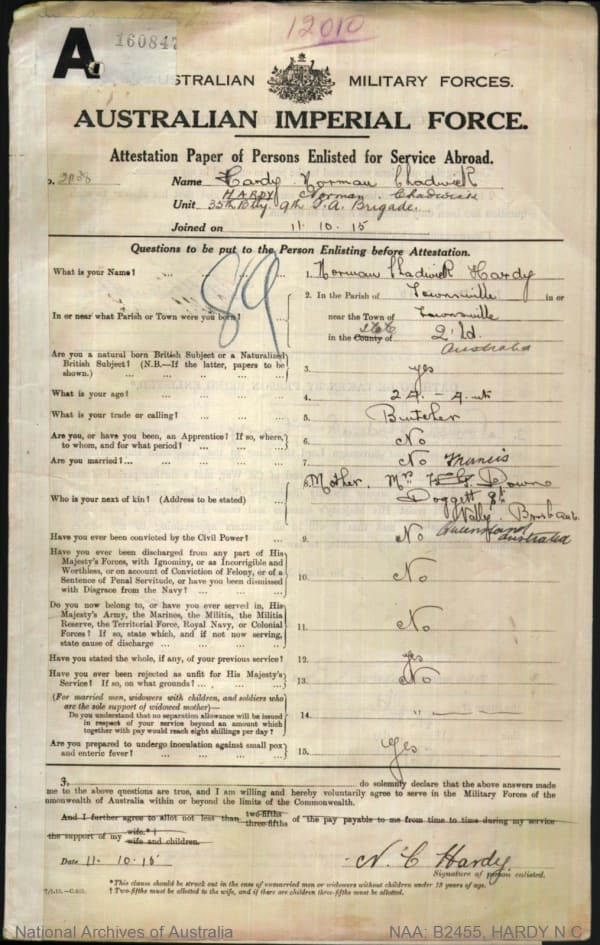 12010
A
160847
AUSTRALIAN MILITARY FORCES.
AUSTRALIAN IMPERIAL FORCE.
Attestation Paper of Persons Enlisted for Service Abroad.
Name Hardy Norman Chadwick
HARDY Norman Chadwick
Unit 35th Bty. 9th F.A. Brigade.
Joined on 11.10.15
Questions to be put to the Person Enlisting before Attestation.
89
What is your Name? ... ... ... 1. Norman Chadwick Hardy
In or near what Parish or Town were you born? 2. In the Parish of Townsville in or
near the Town of Townsville
in the County of State Q'ld.
Australia
Are you a natural born British Subject or a Naturalized British Subject? (N.B.—If the latter, papers to be shown.) ... 3. yes
What is your age? ... 4. 24 - 4
What is your trade or calling? ... 5. Butcher
Are you, or have you been, an Apprentice? If so, where, to whom, and for what period? ... 6. No
Are you married? ... 7. No
Who is your next of kin? (Address to be stated) ... 8. Mother. Mrs Francis Down
Doggett St
Valley Brisbane
Queensland Australia
Have you ever been convicted by the Civil Power? ... 9. No
Have you ever been discharged from any part of His
Majesty's Forces, with Ignominy, or as Incorrigible and
Worthless, or on account of Conviction of Felony, or of a
Sentence of Penal Servitude, or have you been dismissed
with Disgrace from the Navy? ... 10. No
Do you now belong to, or have you ever served in, His
Majesty's Army, the Marines, the Militia, the Militia
Reserve, the Territorial Force, Royal Navy, or Colonial
Forces? If so, state which, and if not now serving,
state cause of discharge ... 11. No
Have you stated the whole, if any, of your previous service? 12. yes
Have you ever been rejected as unfit for His Majesty's
Service? If so, on what grounds? ... 13. No
(For married men, widowers with children, and soldiers who
are the sole support of widowed mother)—
Do you understand that no separation allowance will be issued
in respect of your service beyond an amount which
together with pay would reach eight shillings per day? 14. "
Are you prepared to undergo inoculation against small pox
and enteric fever? ... 15. Yes
I, ... do solemnly declare that the above answers made
me to the above questions are true, and I am willing and hereby voluntarily agree to serve in the Military Forces of the
mmonwealth of Australia within or beyond the limits of the Commonwealth.
And I further agree to allot not less than two-fifths three-fifths of the pay payable to me from time to time during my service
the support of my wife.*† wife and children.
Date 11.10.15 N. C Hardy
Signature of person enlisted.
*This clause should be struck out in the case of unmarried men or widowers without children under 18 years of age.
† Two-fifths must be allotted to the wife, and if there are children three-fifths must be allotted.
National Archives of Australia NAA: B2455, HARDY N C